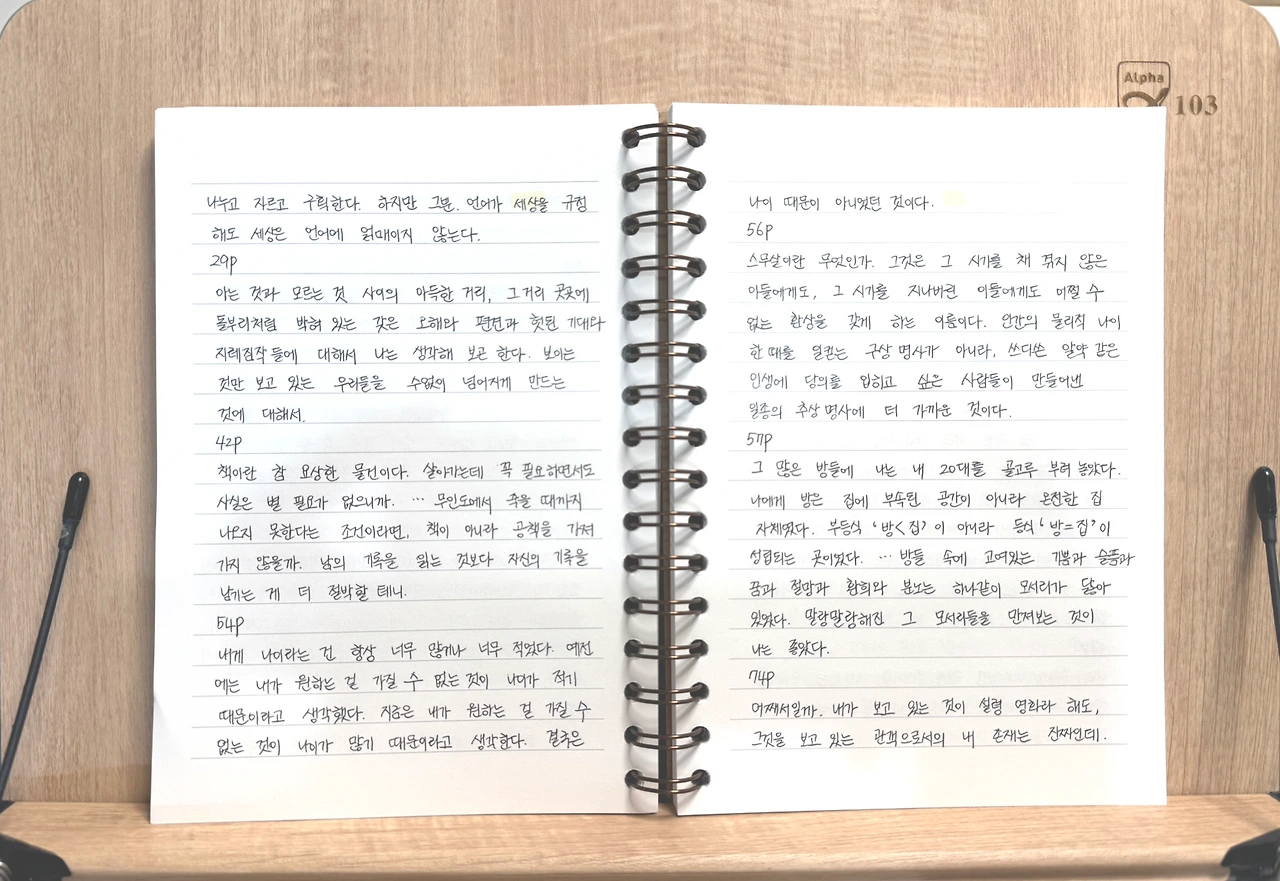 나누고 자르고 구획한다. 하지만 그뿐. 언어가 세상을 규정
해도 세상은 언어에 얽매이지 않는다.
29p
아는 것과 모르는 것 사이의 아득한 거리, 그 거리 곳곳에
돌부리처럼 박혀 있는 갖은 오해와 편견과 헛된 기대와
지레짐작들에 대해서 나는 생각해 보곤 한다. 보이는
것만 보고 있는 우리들을 수없이 넘어지게 만드는
것에 대해서.
42p
책이란 참 요상한 물건이다. 살아가는데 꼭 필요하면서도
사실은 별 필요가 없으니까. … 무인도에서 죽을 때까지
나오지 못한다는 조건이라면, 책이 아니라 공책을 가져
가지 않을까. 남의 기록을 읽는 것보다 자신의 기록을
남기는 게 더 절박할 테니.
54p
내게 나이라는 건 항상 너무 많거나 너무 적었다. 예전
에는 내가 원하는 걸 가질 수 없는 것이 나이가 적기
때문이라고 생각했다. 지금은 내가 원하는 걸 가질 수
없는 것이 나이가 많기 때문이라고 생각한다. 결국은
나이 때문이 아니었던 것이다.
56p
스무살이란 무엇인가. 그것은 그 시기를 채 겪지 않은
아들에게도, 그 시기를 지나버린 이들에게도 어쩔 수
없는 환상을 갖게 하는 이름이다. 인간의 물리적 나이
한 때를 일컫는 구상 명사가 아니라, 쓰디쓴 알약 같은
인생에 당의를 입히고 싶은 사람들이 만들어낸
일종의 추상 명사에 더 가까운 것이다.
57p
그 많은 방들에 나는 내 20대를 골고루 부려 놓았다.
나에게 방은 집에 부속된 공간이 아니라 온전한 집
자체였다. 부등식 '방<집'이 아니라 등식 '방=집'이
성립되는 곳이었다. … 방들 속에 고여있는 기쁨과 슬픔과
꿈과 절망과 환희와 분노는 하나같이 모서리가 닳아
있었다. 말랑말랑해진 그 모서리들을 만져보는 것이
나는 좋았다.
74p
어째서일까. 내가 보고 있는 것이 설령 영화라 해도,
그것을 보고 있는 관객으로서의 내 존재는 진짜인데.
Alpha
103